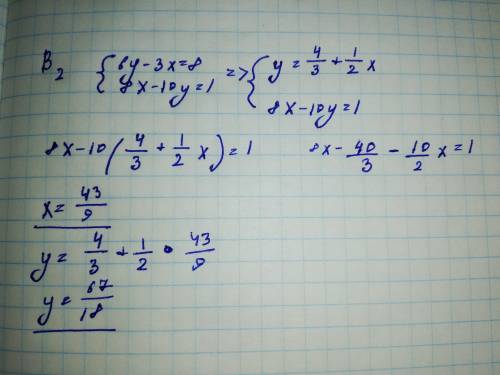 B₂ { 6y-3x=8 => { y = 4/3 + 1/2 x
8x-10y=1
8x-10y=1
8x-10 ( 4/3 + 1/2 x ) = 1
8x - 40/3 - 10/2 x = 1
x = 43/9
y = 4/3 + 1/2 • 43/9
y = 67/18